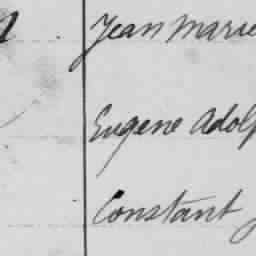 Jean Marie
Eugene Adolp
Constant